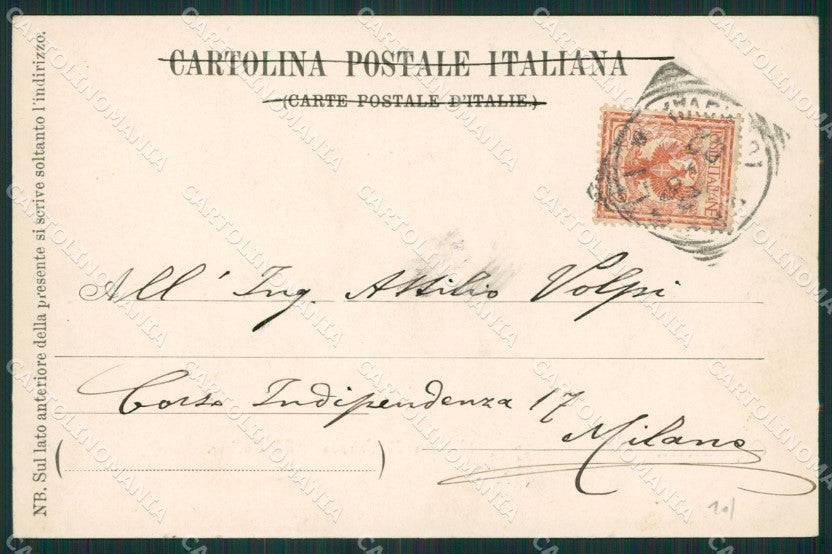 CARTOLINA POSTALE ITALIANA
(CARTE POSTALE D'ITALIE.)
NB. Sul lato anteriore della presente si scrive soltanto l'indirizzo.
All' Ing. Attilio Volpi
Corso Indipendenza 17
Milano
20/
CARTOLINOMANIA